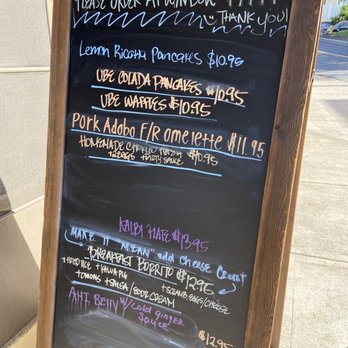 PLEASE ORDER AT WINDOW
THANK YOU!
Lemon Ricotta Pancakes $10.95
UBE COLADA PANCAKES $10.95
UBE WAFFLES $10.95
Pork Adobo F/R omelette $11.95
HOMEMADE CORNED HASH $10.95
+2 EGGS +
KALBI PLATE $13.95
MAKE IT "MEAN" add Cheese Crust
BREAKFAST BURRITO $12.95
+FRIED RICE + KALUA PIG
+ SCRAMB. EGGS/CHEESE
+ONIONS +SALSA/SOUR CREAM
AHI BELLY w/ cold ginger
SAUCE
$12.95